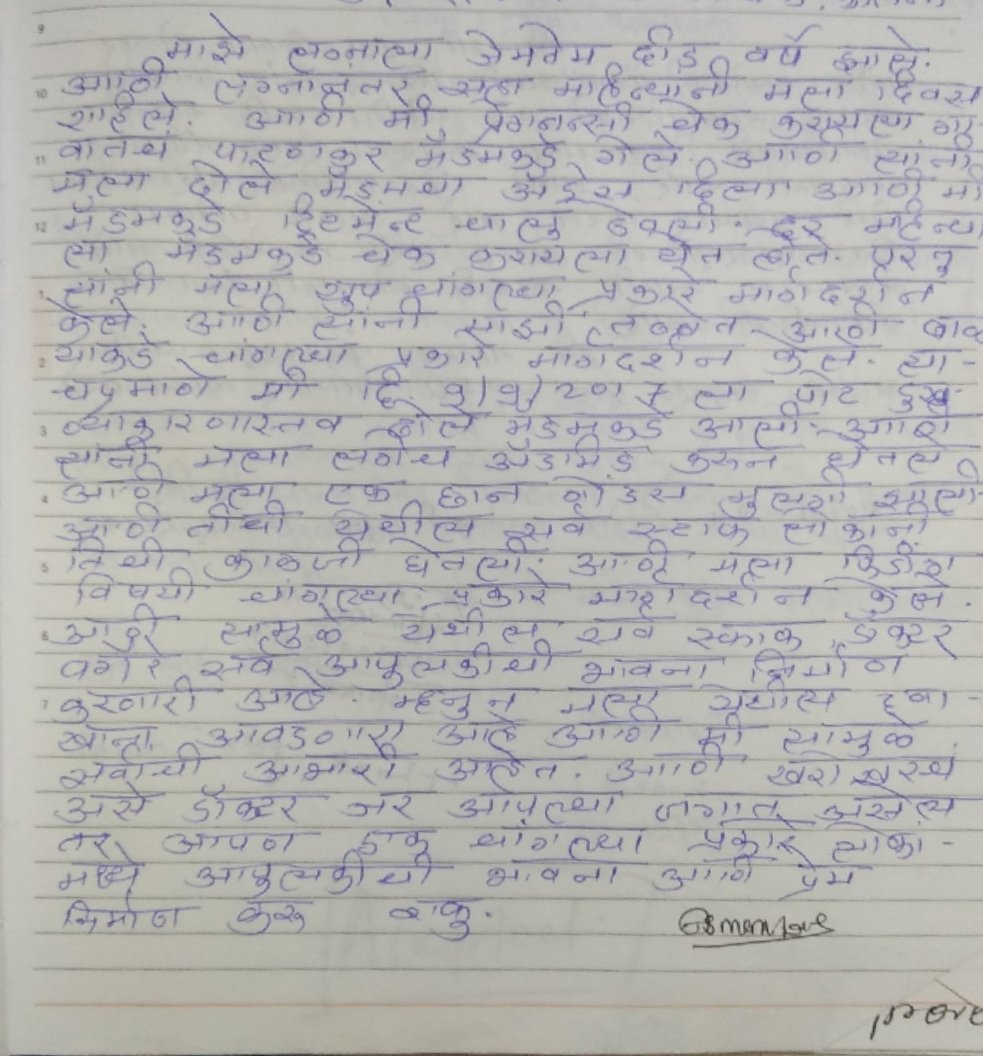 माझे लग्नाला जेमतेम दीड वर्ष झाले.
आणी लग्नानंतर सहा महिन्यानी मला दिवस
राहीले. आणी मी प्रेगनन्सी चेक करायला
पाटणकर मॅडमकडे गेले. आणी त्यानी
मला ढोले मॅडमचा अ‍ॅड्रेस दिला आणी मी
मॅडमकडे ट्रिटमेन्ट चालु ठेवली. दर महिन्या
ला मॅडमकडे चेक करायला येत होते. परंतु
त्यांनी मला खुप चांगल्या प्रकारे मार्गदर्शन
केले. आणी त्यांनी माझी तब्बेत आणी बाळ
याकडे चांगल्या प्रकारे मार्गदर्शन केले. त्या-
चप्रमाणे मी दि 9/9/2017 ला पोट दुख-
ण्याकारणास्तव ढोले मॅडमकडे आली. आणी
त्यांनी मला लगेच अ‍ॅडमिड करुन घेतले
आणी मला एक छान गोंडस मुलगी झाली
आणी तीची येथील सर्व स्टाफ लोकांनी
तिची काळजी घेतली. आणी मला फिडींग
विषयी चांगल्या प्रकारे मार्गदर्शन केले.
आणी त्यामुळे येथील सर्व स्टाफ डॉक्टर
वगैरे सर्व आपुलकीची भावना निर्माण
करणारी आहे. म्हनुन मला येथील दवा-
खाना आवडणारा आहे आणी मी त्यामुळे
सर्वांची आभारी आहेत. आणी खरोखरच
असे डॉक्टर जर आपल्या जगात असेल
तर आपण एक चांगल्या प्रकारे लोका-
मध्ये आपुलकीची भावना आणी प्रेम
निर्माण करु शकु.